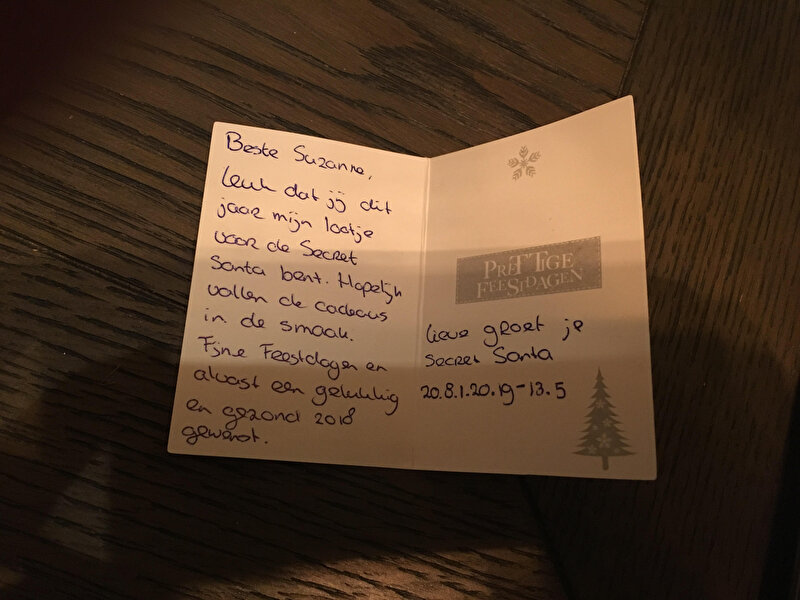 Beste Suzanne,
leuk dat jij dit
jaar mijn lootje
voor de Secret
Santa bent. Hopelijk
vallen de cadeaus
in de smaak.
Fijne Feestdagen en
alvast een gelukkig
en gezond 2018
gewenst.
PRETTIGE
FEESTDAGEN
lieve groet je
Secret Santa
20.8.1.20.19-13.5